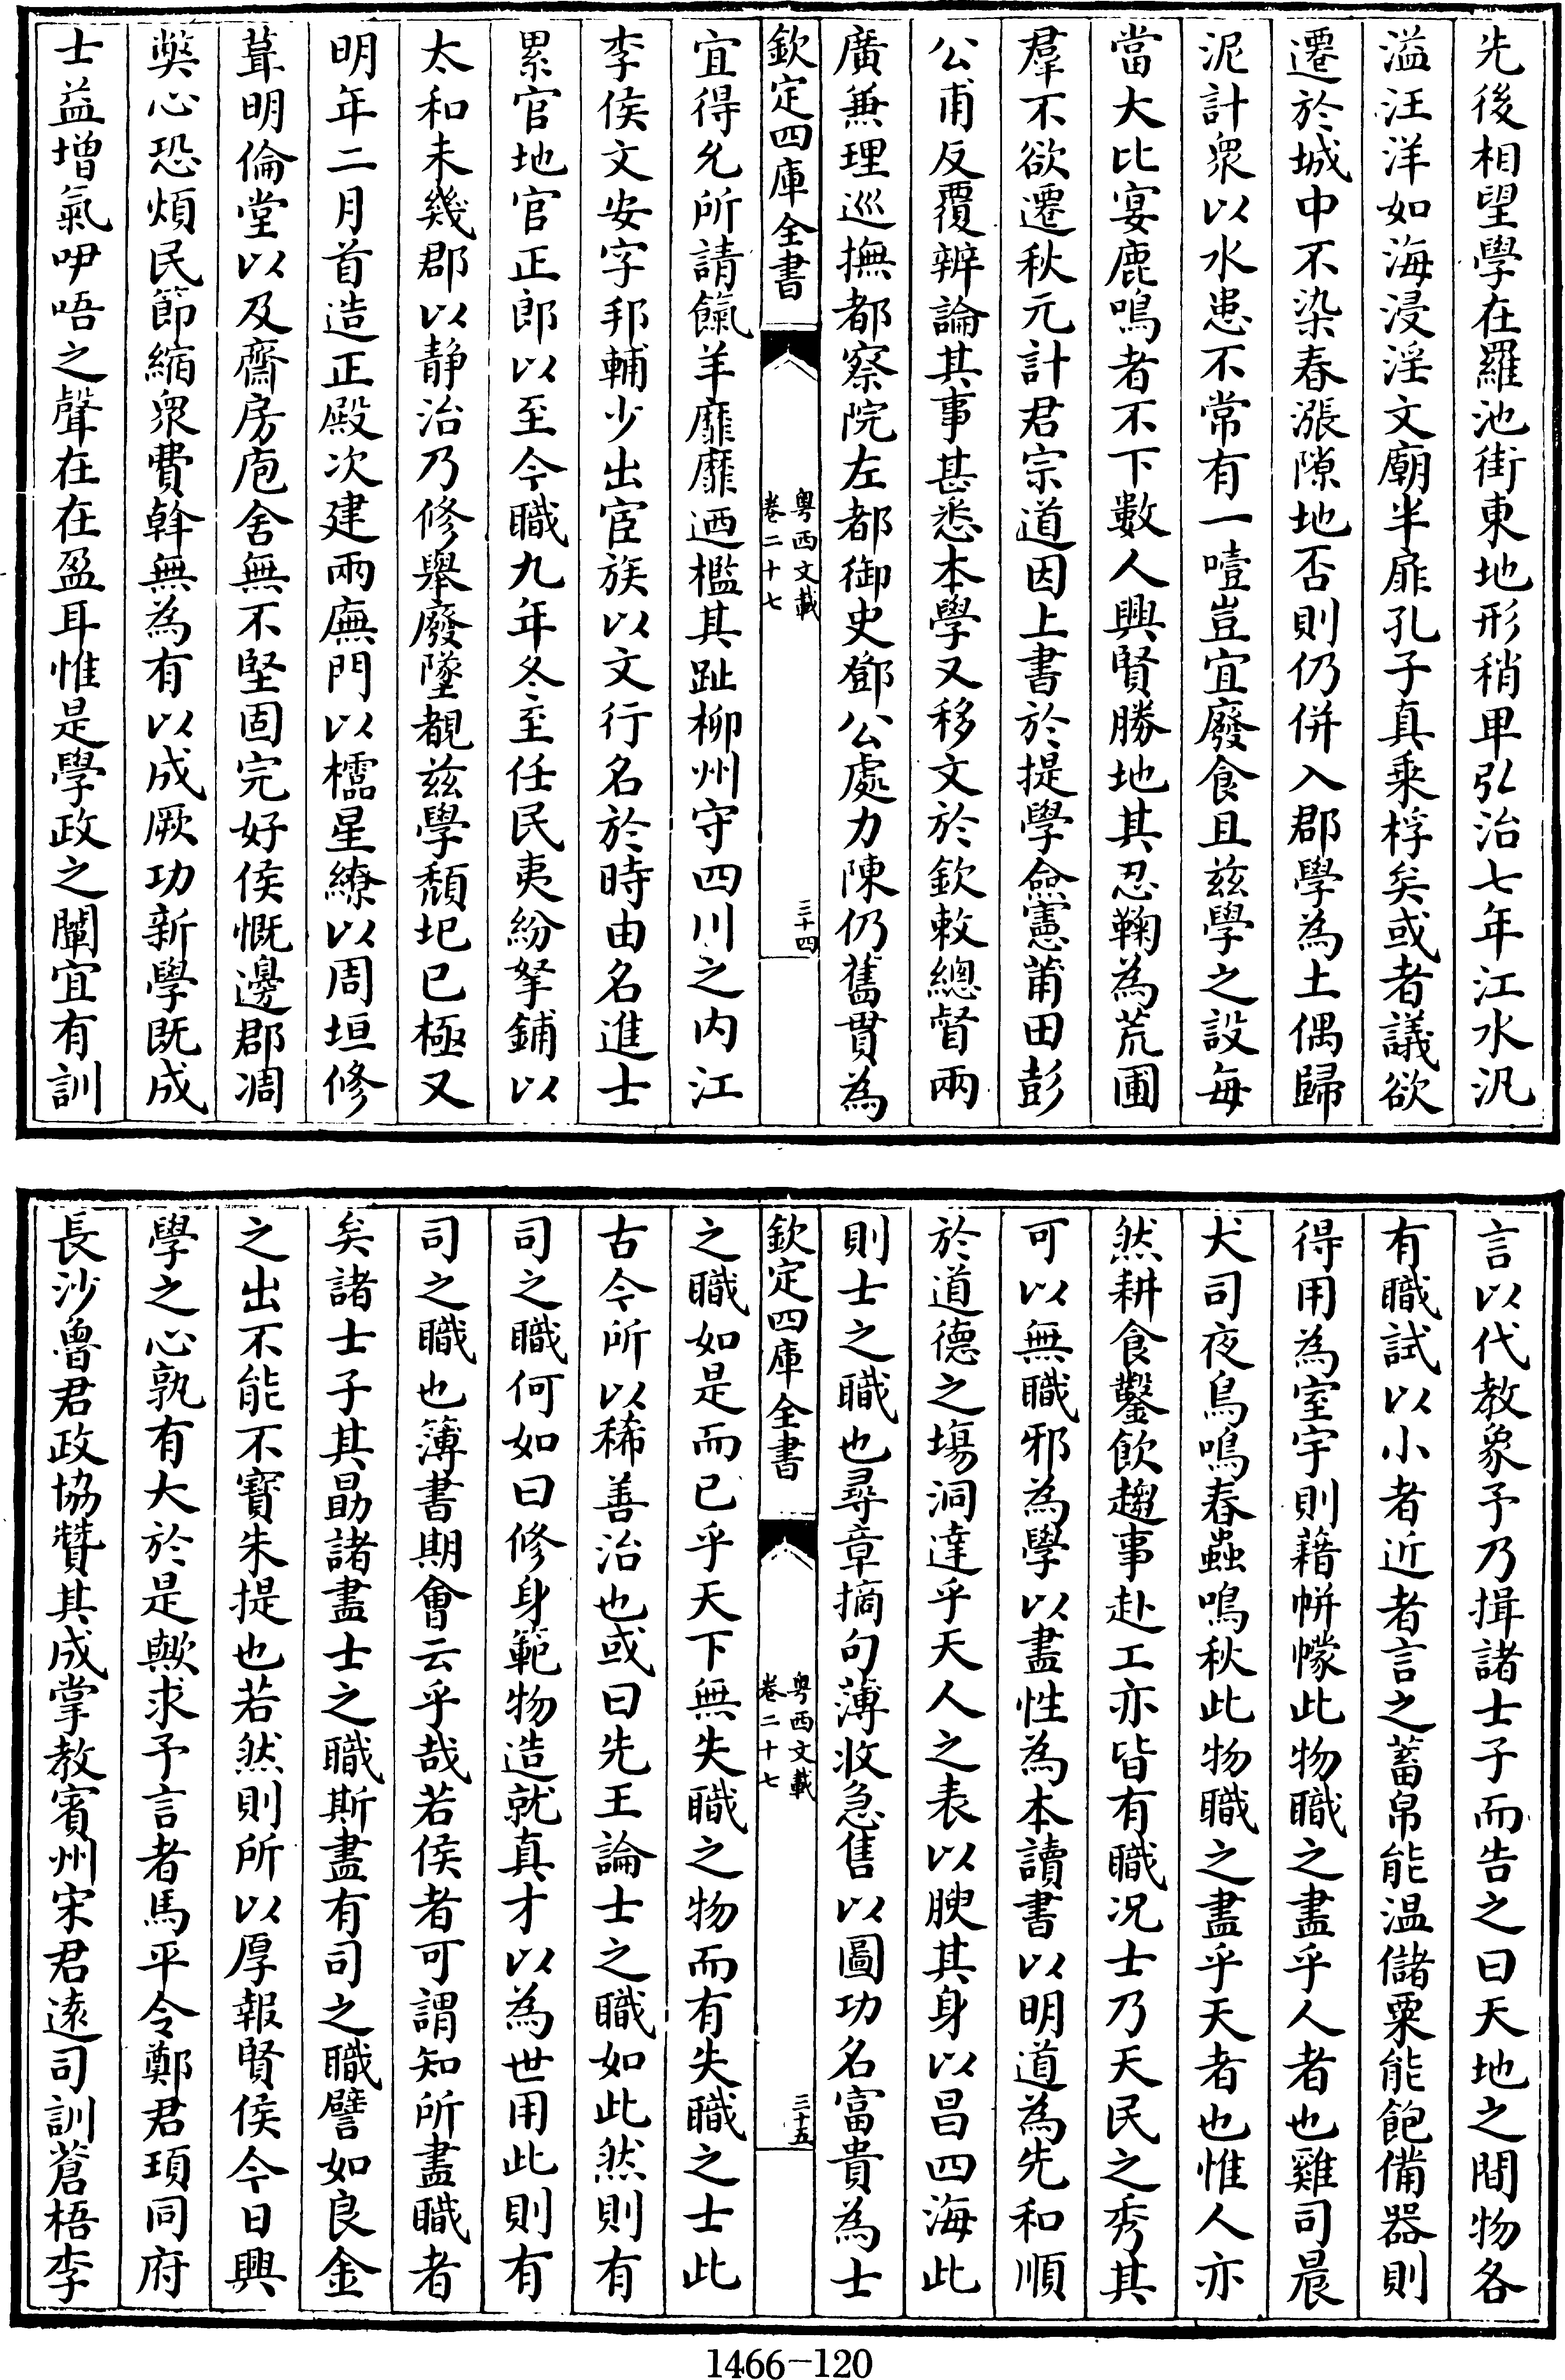 先後相望學在羅池街東地形稍卑弘治七年江水汎
溢汪洋如海浸淫文廟半扉孔子真乘桴矣或者議欲
遷於城中不染春漲隙地否則仍併入郡學為土偶歸
泥計衆以水患不常有一噎豈宜廢食且兹學之設每
當大比宴鹿鳴者不下數人興賢勝地其忍鞠為荒圃
羣不欲遷秋元計君宗道因上書於提學僉憲莆田彭
公甫反覆辨論其事甚悉本學又移文於欽敕總督兩
廣兼理巡撫都察院左都御史鄧公處力陳仍舊貫為
欽定四庫全書
粤西文載
卷二十七
三十四
宜得允所請餼羊靡靡迺檻其趾柳州守四川之内江
李侯文安字邦輔少出宦族以文行名於時由名進士
累官地官正郎以至今職九年冬至任民夷紛拏鋪以
太和未幾郡以静治乃修舉廢墜覩兹學頽圮已極又
明年二月首造正殿次建兩廡門以櫺星繚以周垣修
葺明倫堂以及齋房庖舍無不堅固完好侯慨邊郡凋
獘心恐煩民節縮衆費斡無為有以成厥功新學既成
士益增氣吚唔之聲在在盈耳惟是學政之闡宜有訓
言以代教象予乃揖諸士子而告之曰天地之間物各
有職試以小者近者言之蓄帛能温儲粟能飽備器則
得用為室宇則藉帡幪此物職之盡乎人者也雞司晨
犬司夜鳥鳴春蟲鳴秋此物職之盡乎天者也惟人亦
然耕食鑿飲趨事赴工亦皆有職况士乃天民之秀其
可以無職邪為學以盡性為本讀書以明道為先和順
於道德之塲洞達乎天人之表以腴其身以昌四海此
則士之職也尋章摘句薄收急售以圖功名富貴為士
欽定四庫全書
粤西文載
卷二十七
三十五
之職如是而已乎天下無失職之物而有失職之士此
古今所以稀善治也或曰先王論士之職如此然則有
司之職何如曰修身範物造就真才以為世用此則有
司之職也簿書期會云乎哉若侯者可謂知所盡職者
矣諸士子其勗諸盡士之職斯盡有司之職譬如良金
之出不能不寳朱提也若然則所以厚報賢侯今日興
學之心孰有大於是歟求予言者馬平令鄭君頊同府
長沙魯君政協贊其成掌教賓州宋君遠司訓蒼梧李
1466-120